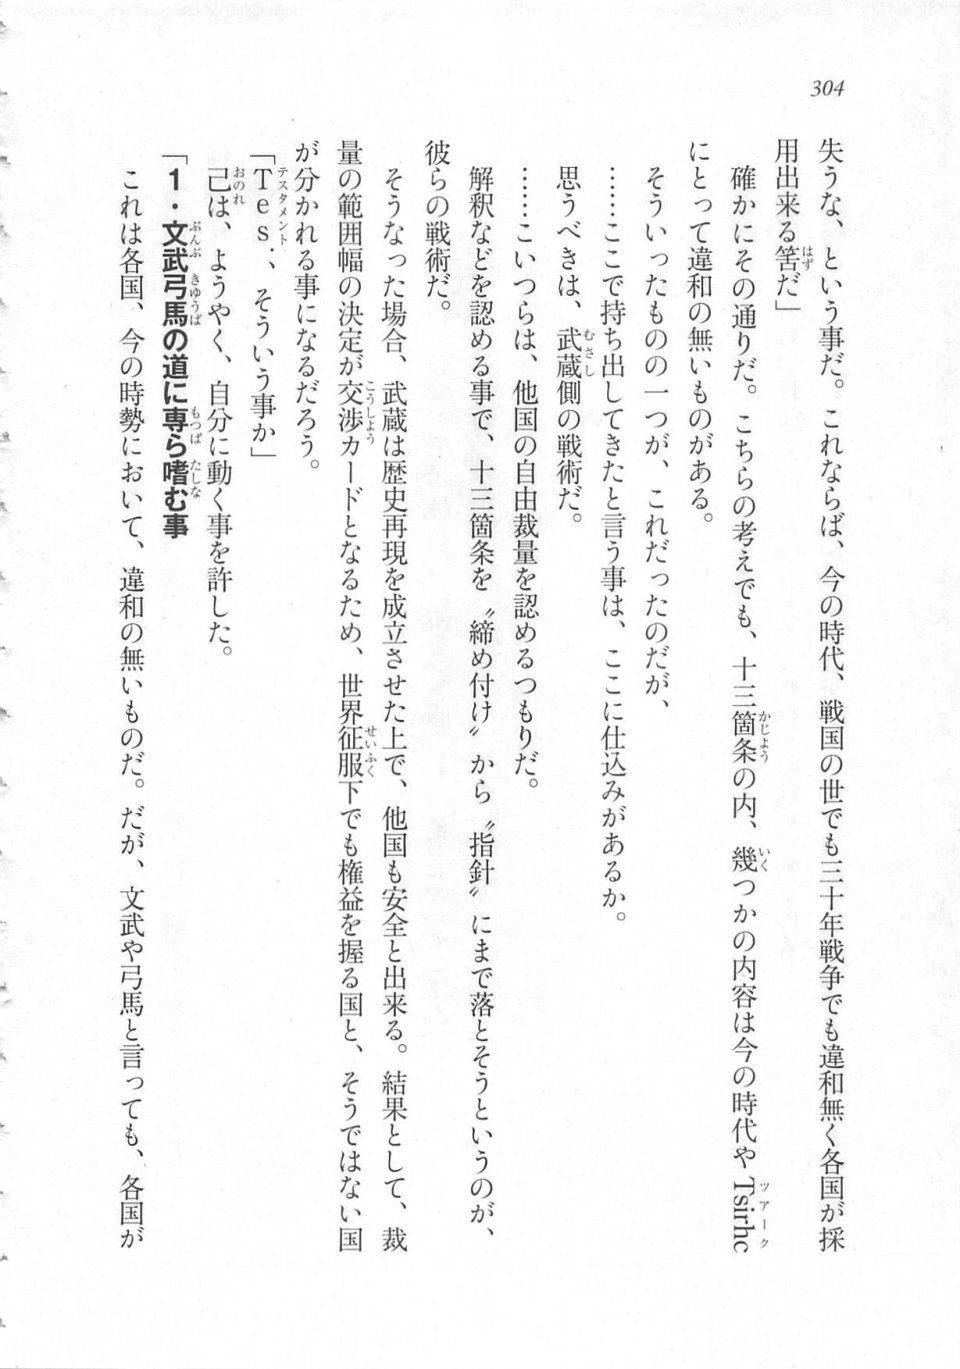 304
失うな、という事だ。これならば、今の時代、戦国の世でも三十年戦争でも違和無く各国が採
用出来る筈だ」
確かにその通りだ。こちらの考えでも、十三箇条の内、幾つかの内容は今の時代やTsirhc
にとって違和の無いものがある。
そういったものの一つが、これだったのだが、
……ここで持ち出してきたと言う事は、ここに仕込みがあるか。
思うべきは、武蔵側の戦術だ。
……こいつらは、他国の自由裁量を認めるつもりだ。
解釈などを認める事で、十三箇条を〝締め付け〟から〝指針〟にまで落とそうというのが、
彼らの戦術だ。
そうなった場合、武蔵は歴史再現を成立させた上で、他国も安全と出来る。結果として、裁
量の範囲幅の決定が交渉カードとなるため、世界征服下でも権益を握る国と、そうではない国
が分かれる事になるだろう。
「Tes.、そういう事か」
己は、ようやく、自分に動く事を許した。
「1・文武弓馬の道に専ら嗜む事
これは各国、今の時勢において、違和の無いものだ。だが、文武や弓馬と言っても、各国が